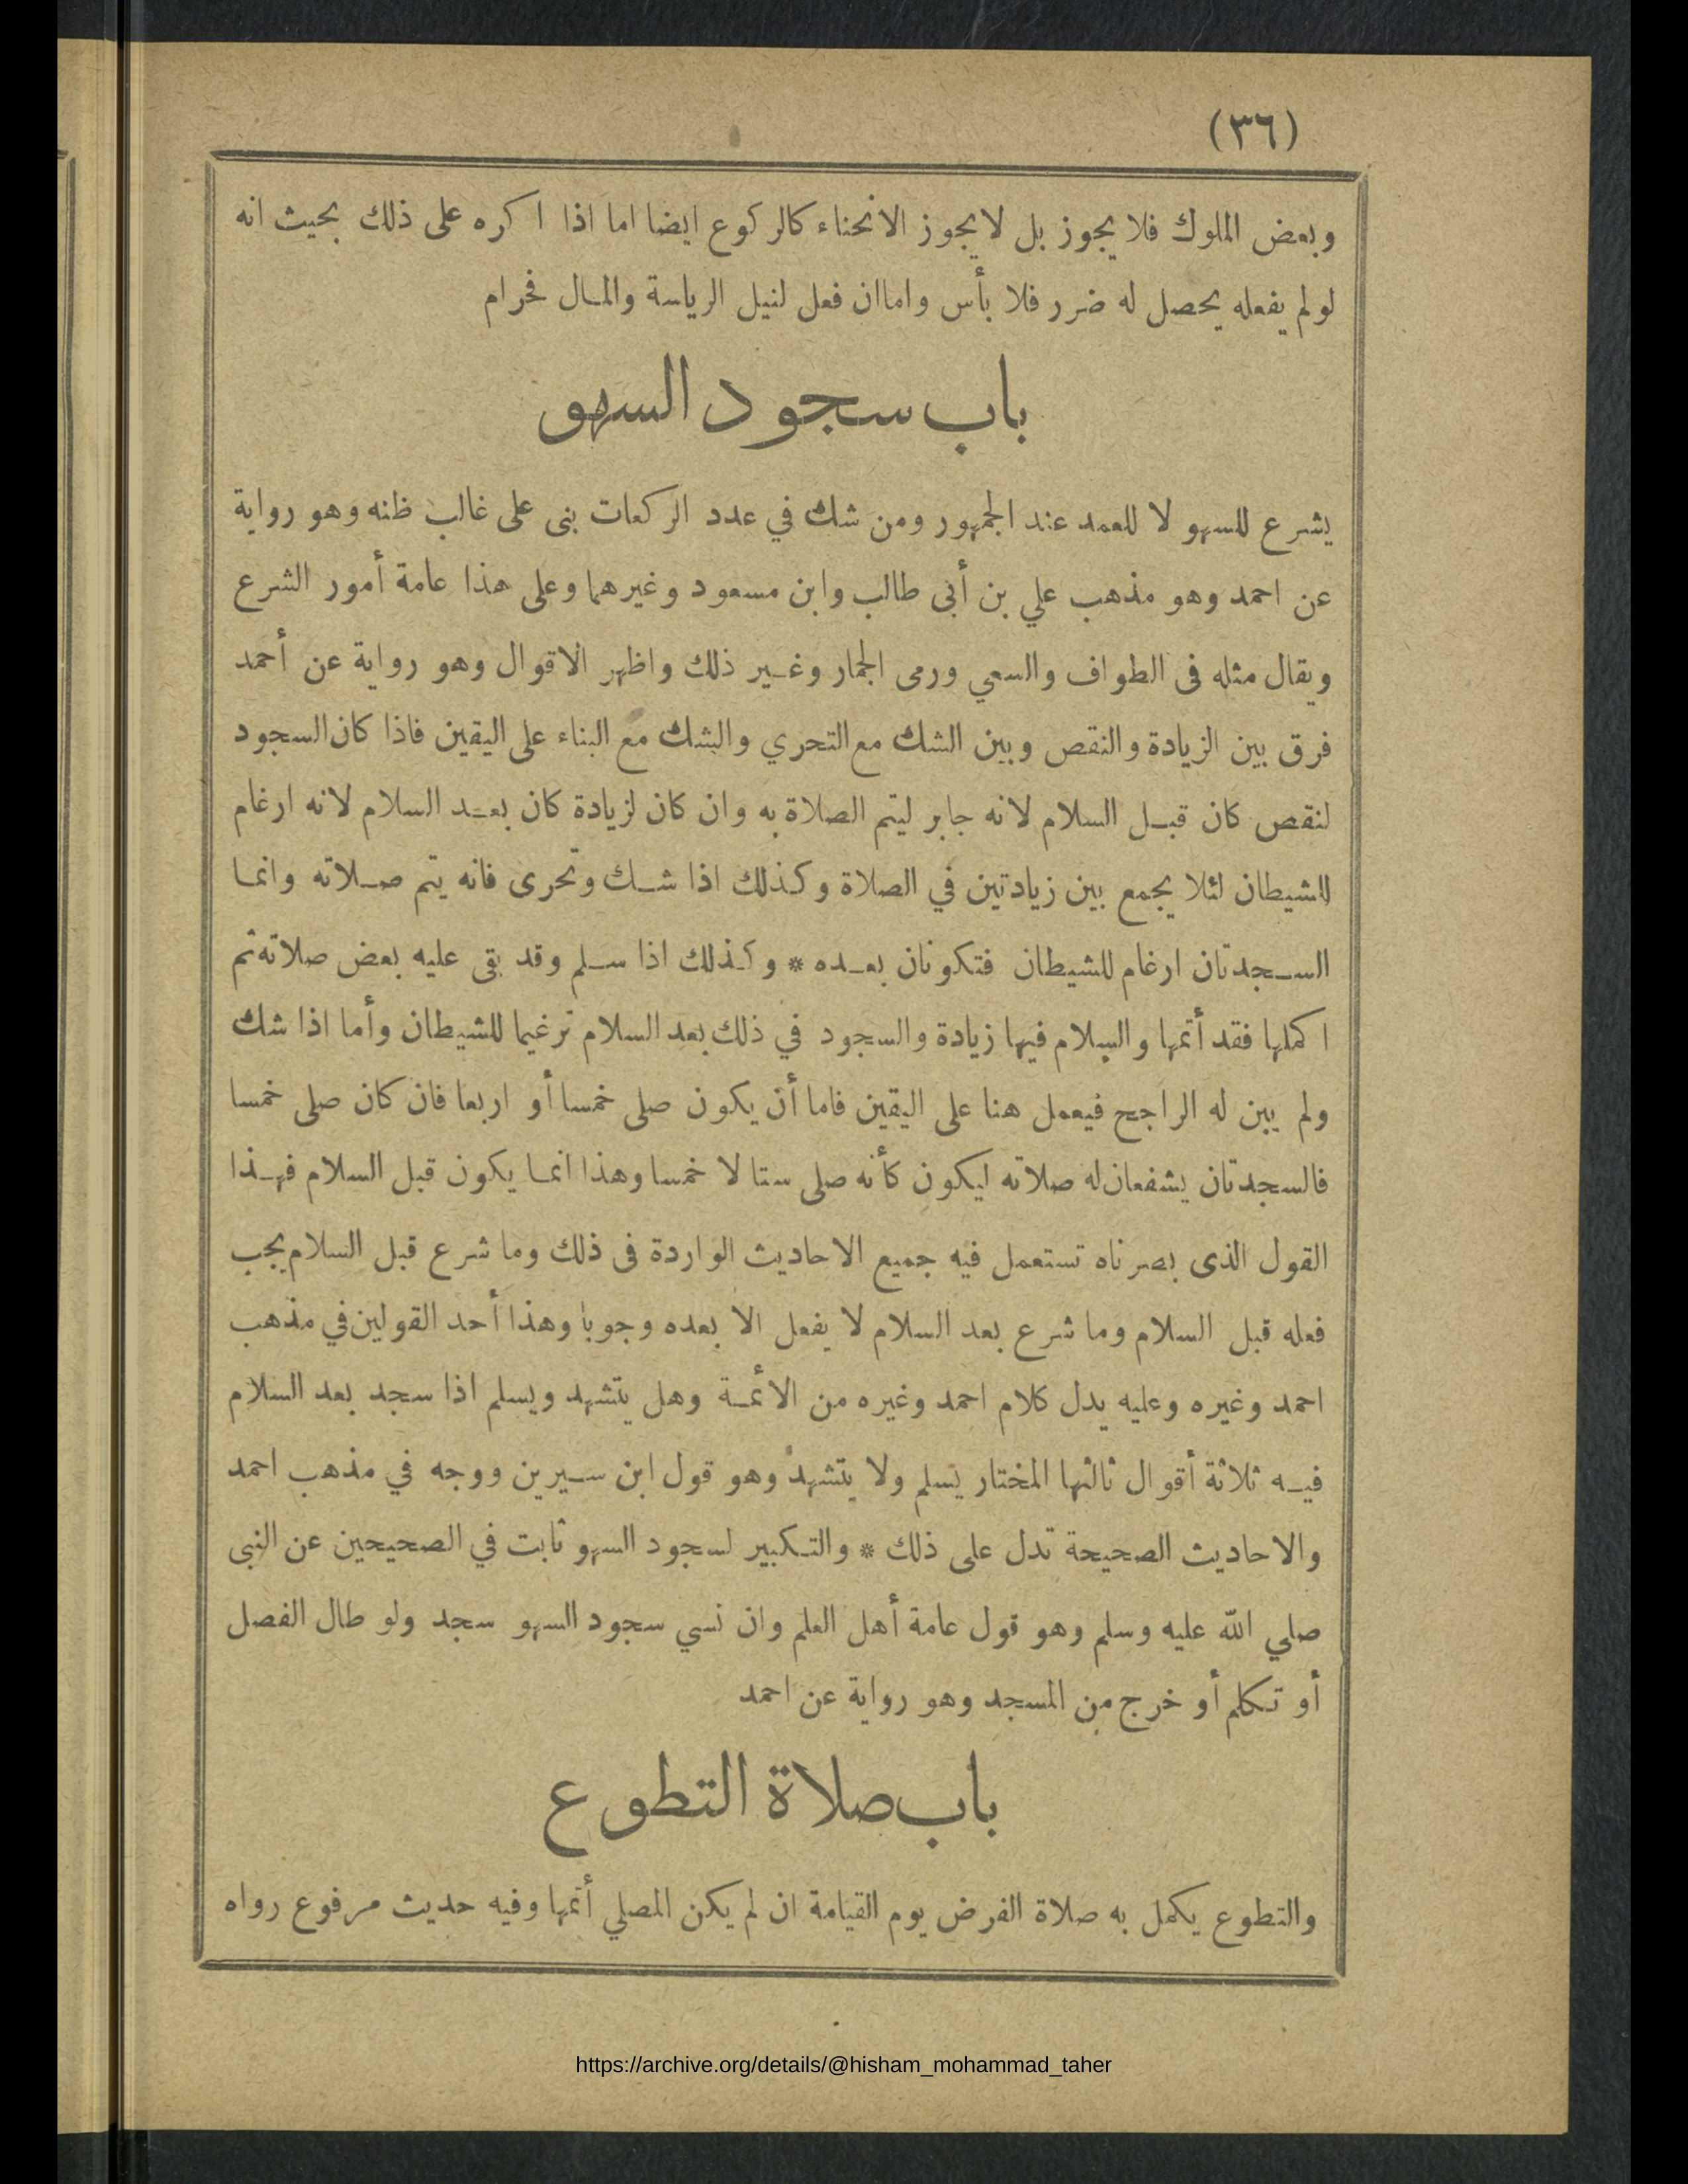 (٣٦)
وبعض الملوك فلا يجوز بل لا يجوز الانحناء كالركوع ايضا اما اذا اكره على ذلك بحيث انه
لو لم يفعله يحصل له ضرر فلا بأس واما ان فعل لنيل الرياسة والمال فحرام
باب سجود السهو
يشرع للسهو لا للعمد عند الجمهور ومن شك في عدد الركعات بنى على غالب ظنه وهو رواية
عن احمد وهو مذهب علي بن أبى طالب وابن مسعود وغيرهما وعلى هذا عامة أمور الشرع
ويقال مثله فى الطواف والسعي ورمى الجمار وغير ذلك واظهر الاقوال وهو رواية عن أحمد
فرق بين الزيادة والنقص وبين الشك مع التحري والشك مع البناء على اليقين فاذا كان السجود
لنقص كان قبل السلام لانه جابر ليتم الصلاة به وان كان لزيادة كان بعد السلام لانه ارغام
للشيطان لئلا يجمع بين زيادتين في الصلاة وكذلك اذا شك وتحرى فانه يتم صلاته وانما
السجدتان ارغام للشيطان فتكونان بعده * وكذلك اذا سلم وقد بقى عليه بعض صلاته ثم
اكملها فقد أتمها والسلام فيها زيادة والسجود في ذلك بعد السلام ترغيما للشيطان وأما اذا شك
ولم يبن له الراجح فيعمل هنا على اليقين فاما أن يكون صلى خمسا أو اربعا فان كان صلى خمسا
فالسجدتان يشفعان له صلاته ليكون كأنه صلى ستا لا خمسا وهذا انما يكون قبل السلام فهذا
القول الذى بصرناه تستعمل فيه جميع الاحاديث الواردة فى ذلك وما شرع قبل السلام يجب
فعله قبل السلام وما شرع بعد السلام لا يفعل الا بعده وجوبا وهذا أحد القولين في مذهب
احمد وغيره وعليه يدل كلام احمد وغيره من الائمة وهل يتشهد ويسلم اذا سجد بعد السلام
فيه ثلاثة أقوال ثالثها المختار يسلم ولا يتشهد وهو قول ابن سيرين ووجه في مذهب احمد
والاحاديث الصحيحة تدل على ذلك * والتكبير لسجود السهو ثابت في الصحيحين عن النبى
صلي الله عليه وسلم وهو قول عامة أهل العلم وان نسي سجود السهو سجد ولو طال الفصل
أو تكلم أو خرج من المسجد وهو رواية عن احمد
باب صلاة التطوع
والتطوع يكمل به صلاة الفرض يوم القيامة ان لم يكن المصلي أتمها وفيه حديث مرفوع رواه
https://archive.org/details/@hisham_mohammad_taher